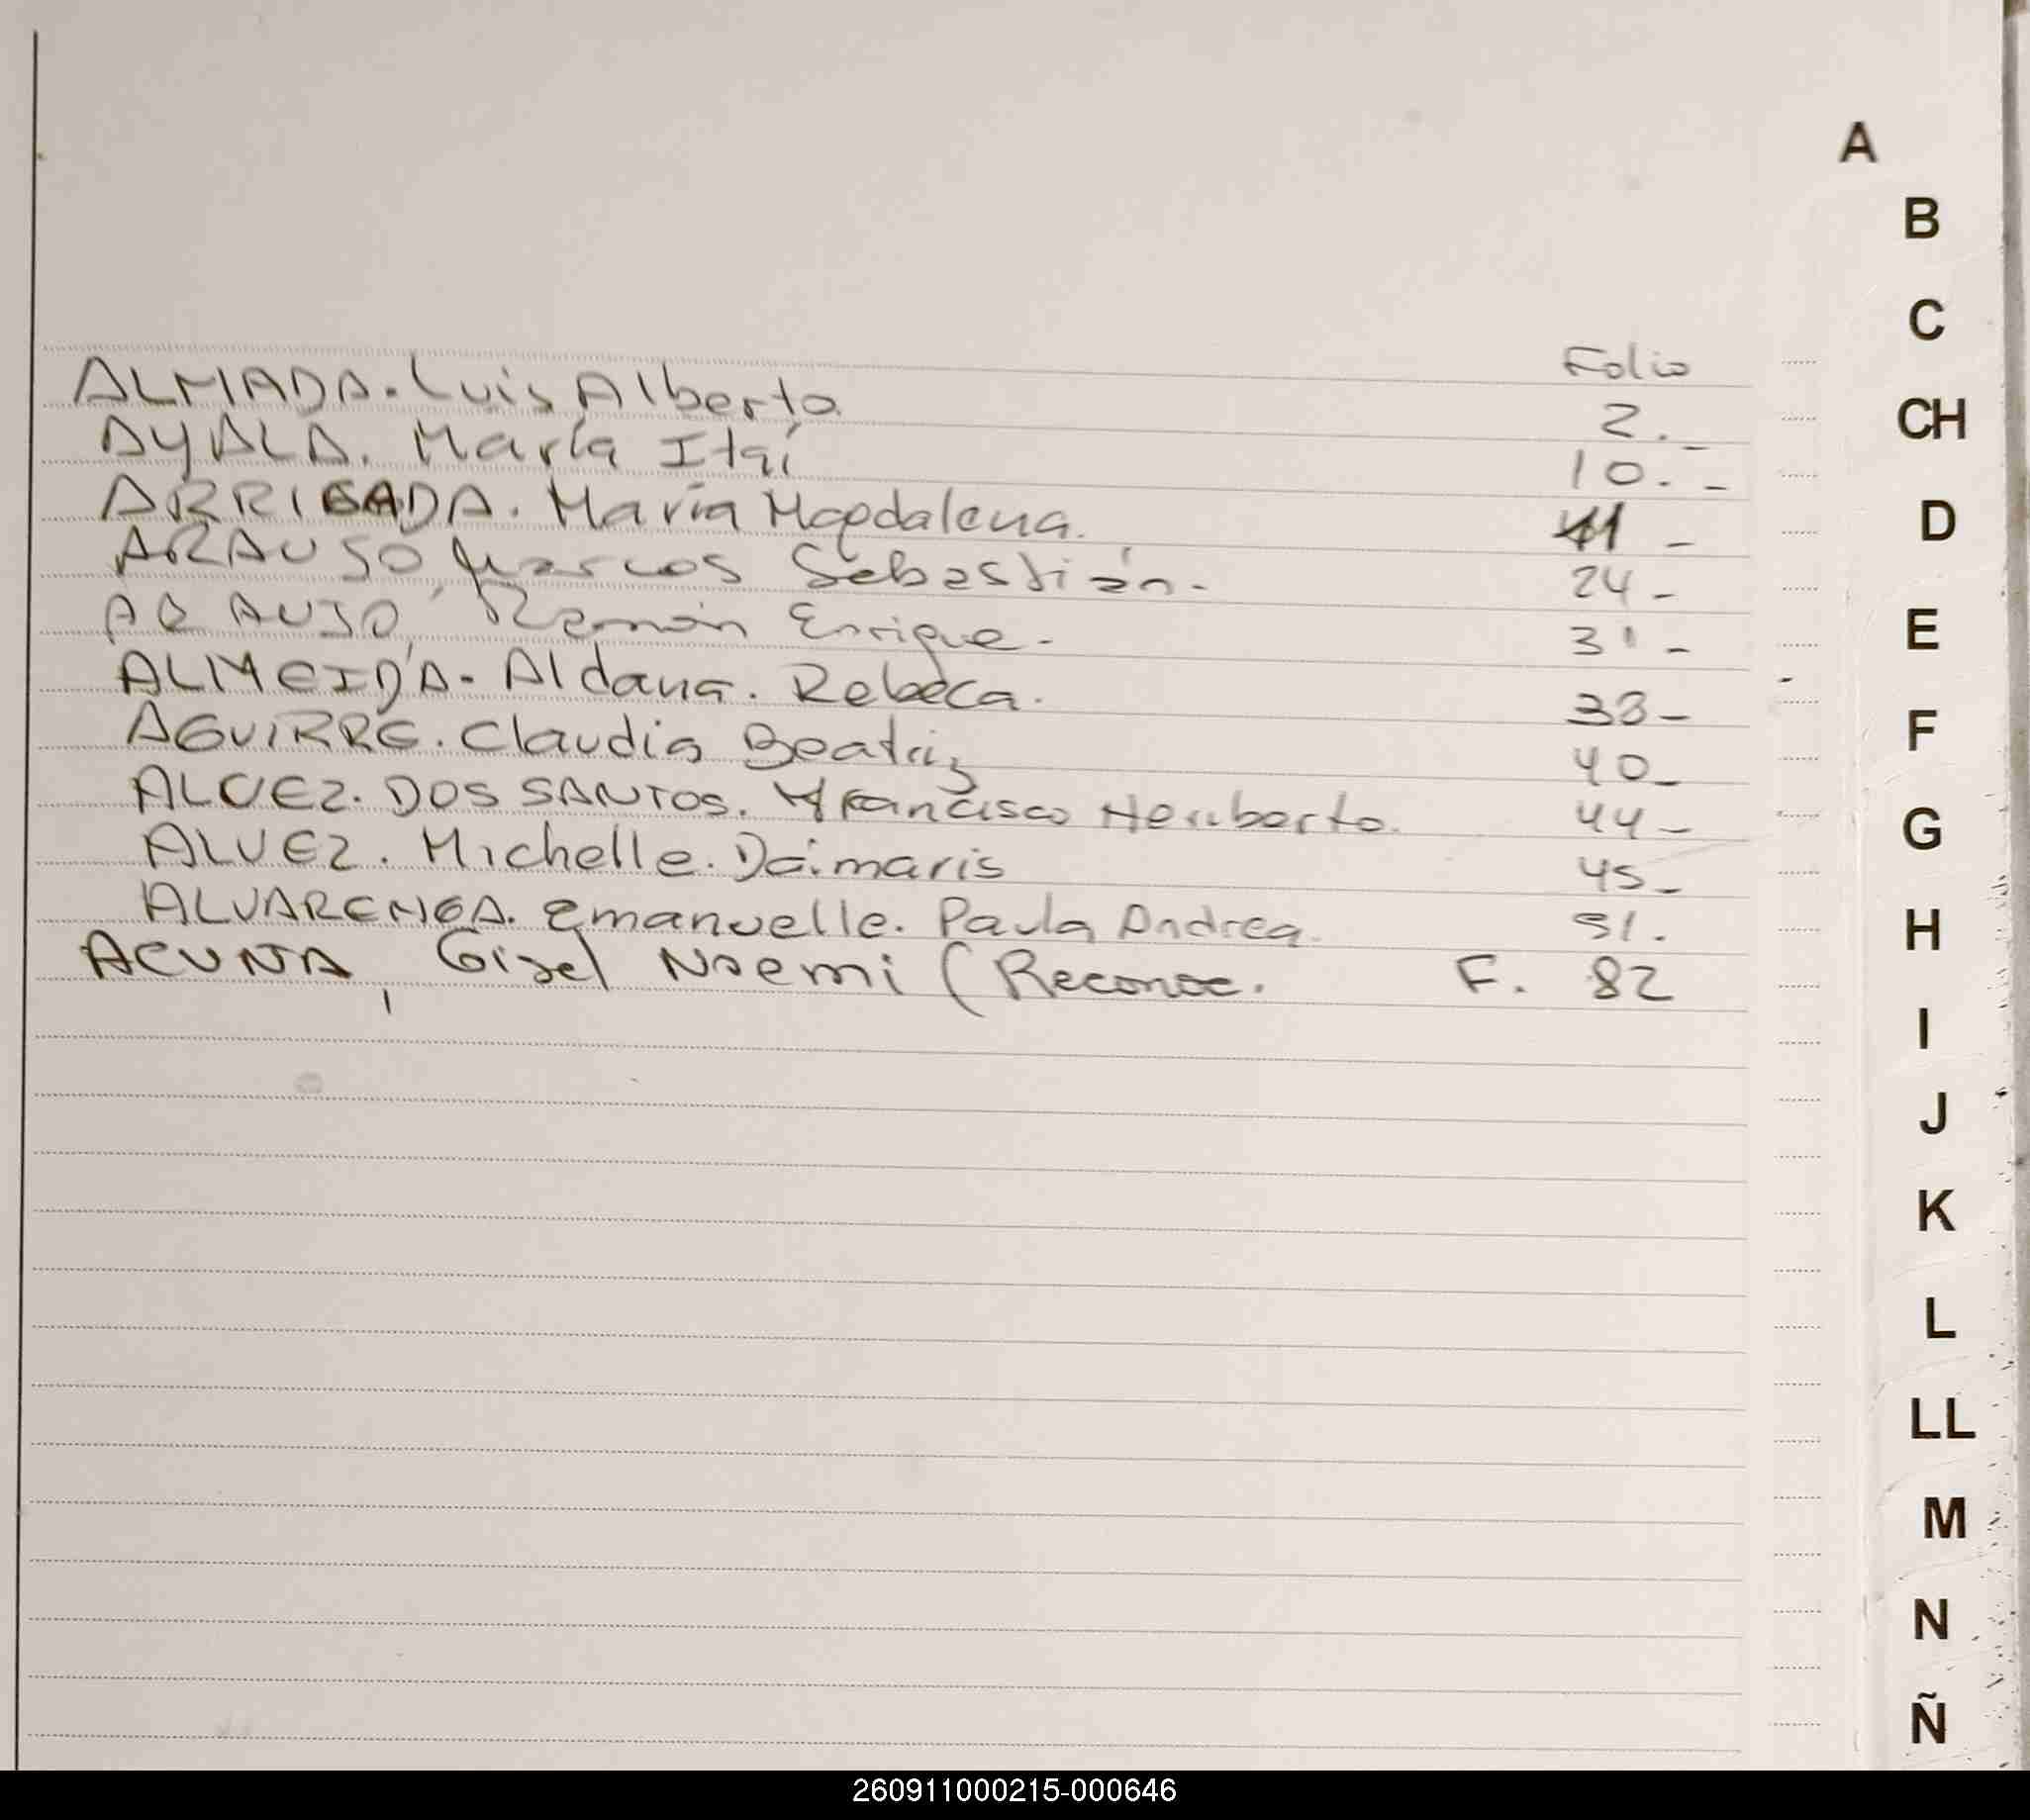 Folio
ALMADA. Luis Alberto 2.-
AYALA. María Itaí 10.-
ARRIGADA. María Magdalena. 11 -
ARAUJO, Marcos Sebastián.- 24 -
ARAUJO, Ramón Enrique.- 31 -
ALMEIDA. Aldana. Rebeca. 33-
AGUIRRE. Claudia Beatriz 40-
ALVEZ. DOS SANTOS. Francisco Heriberto. 44-
ALVEZ. Michelle. Daimaris 45-
ALVARENGA. Emanuelle. Paula Andrea. 51.
ACUNA, Gisel Noemi (Reconoc. F. 82
A
B
C
CH
D
E
F
G
H
I
J
K
L
LL
M
N
Ñ
260911000215-000646